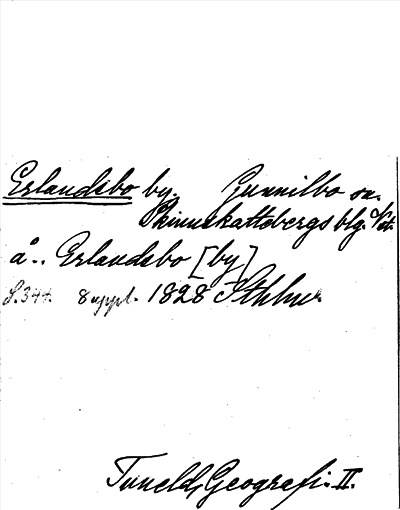 Erlandsbo by. Gunnilbo sn.
Skinnskattebergs blg. Vst.
å.. Erlandsbo [by]
S. 344. 8 uppl. 1828 Sthlm.
Tuneld, Geografi. II.